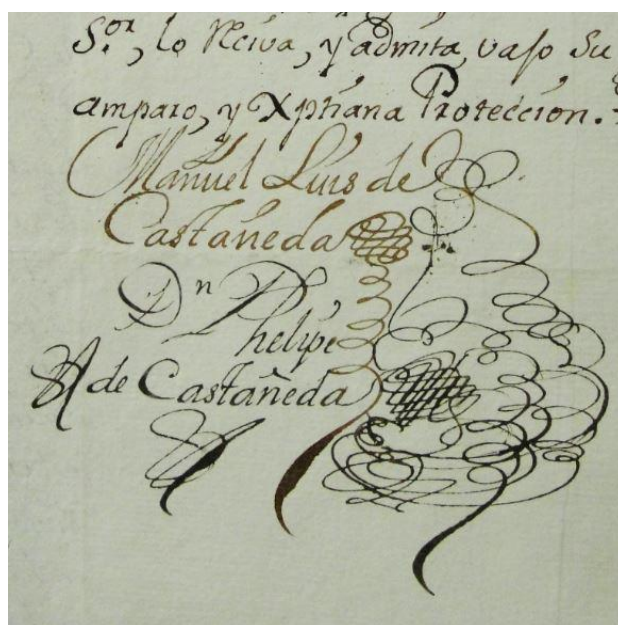 S.or, lo Reciva, y admita, vajo Su
amparo, y Xptiana Proteccion.
Manuel Luis de
Castañeda
Dn Phelipe
A de Castañeda